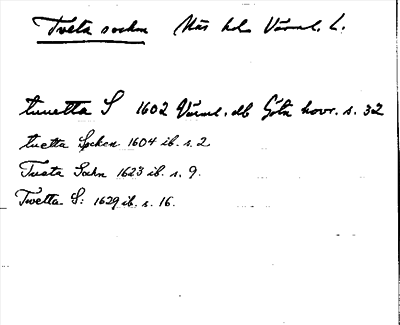 Tveta socken Näs hd. Värml. L.
tuuetta S 1602 Värml. db Göta hovr. s. 32
tuetta Socken 1604 ib. s. 2
Tueta Sockn 1623 ib. s. 9.
Twetta S: 1629 ib. s. 16.